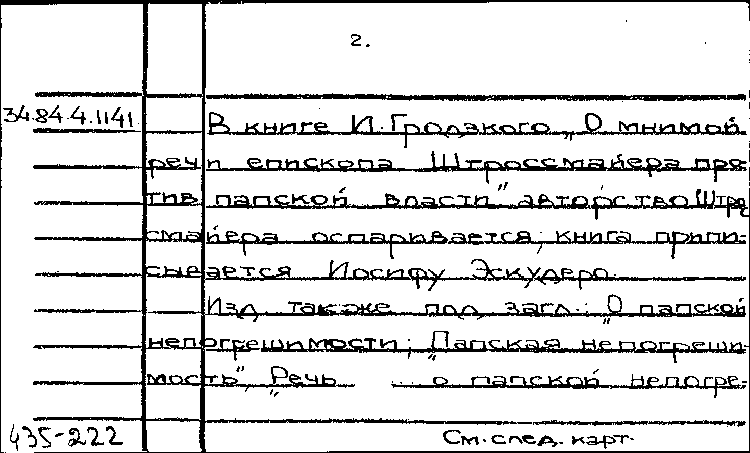 2.
34.84.4.1141
В книге И. Гродзкого „О мнимой
речи епископа Штроссмайера про-
тив папской власти" авторство Штрос-
смайера оспаривается; книга припи-
сывается Иосифу Эскудеро.
Изд. также под загл.: „О папской
непогрешимости; „Папская непогреши-
мость", „Речь ... о папской непогре-
435-222
См. след. карт.